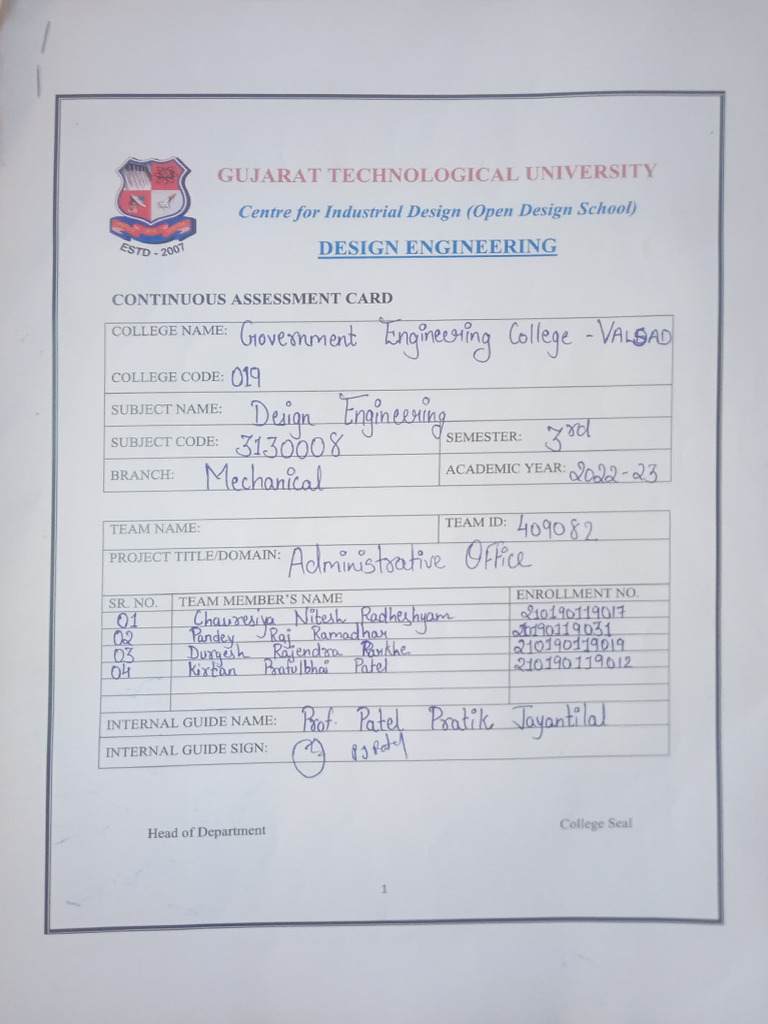 GUJARAT TECHNOLOGICAL UNIVERSITY
Centre for Industrial Design (Open Design School)
DESIGN ENGINEERING
ESTD - 2007
CONTINUOUS ASSESSMENT CARD
COLLEGE NAME: Government Engineering College - VALSAD
COLLEGE CODE: 019
SUBJECT NAME: Design Engineering
SUBJECT CODE: 3130008 SEMESTER: 3rd
BRANCH: Mechanical ACADEMIC YEAR: 2022-23
TEAM NAME: TEAM ID: 409082
PROJECT TITLE/DOMAIN: Administrative Office
SR. NO. TEAM MEMBER'S NAME ENROLLMENT NO.
01 Chauresiya Nitesh Radheshyam 210190119017
02 Pandey Raj Ramadhar
03 Durgesh Rajendra Parkhe 210190119019
04 Kirtan Prafulbhai Patel 210190119012
INTERNAL GUIDE NAME: Prof. Patel Pratik Jayantilal
INTERNAL GUIDE SIGN: PJPatel
Head of Department College Seal
1